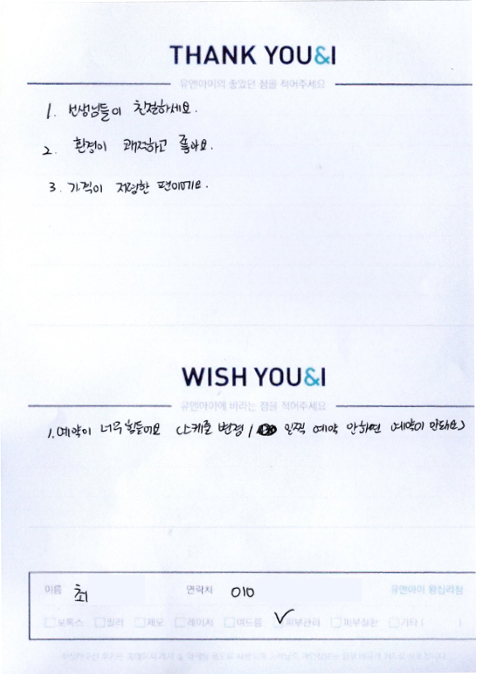 THANK YOU&I
유앤아이의 좋았던 점을 적어주세요
1. 선생님들이 친절하세요.
2. 환경이 쾌적하고 좋아요.
3. 가격이 저렴한 편이에요.
WISH YOU&I
유앤아이에 바라는 점을 적어주세요
1. 예약이 너무 힘들어요 (스케줄 변경 / 일찍 예약 안하면 예약이 안돼요)
이름 최 연락처 010 유앤아이 왕십리점
보톡스 필러 제모 레이저 여드름 피부관리 피부질환 기타 ( )